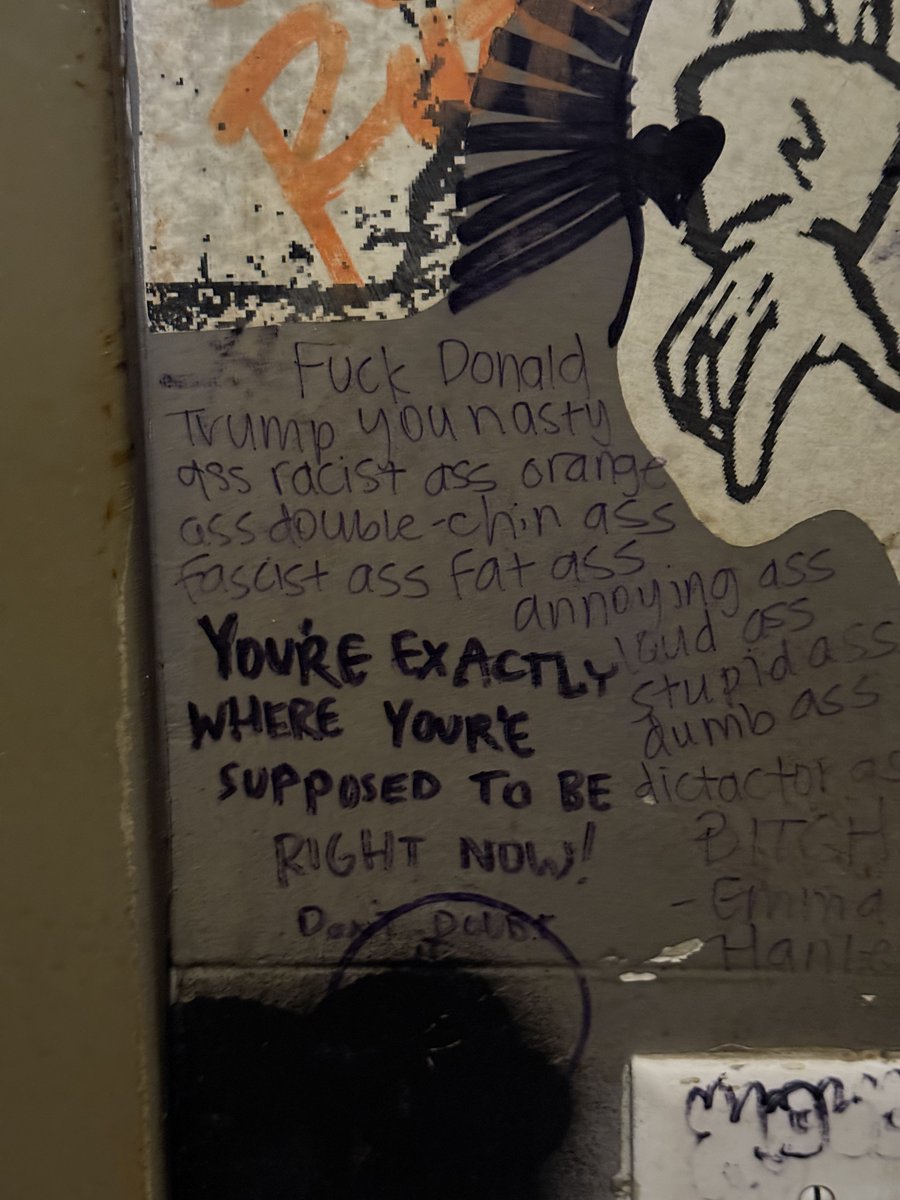 Fuck Donald
Trump you nasty
ass racist ass orange
ass double-chin ass
fascist ass fat ass
annoying ass
loud ass
stupid ass
dumb ass
dictactor as
BITCH
- Emma
YOU'RE EXACTLY
WHERE YOUR'E
SUPPOSED TO BE
RIGHT NOW!
DON'T DOUBT
IT